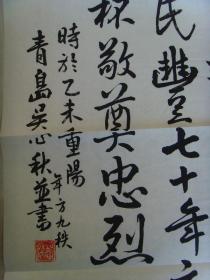 民丰七十年
杯敬奠忠烈
時於乙未重陽
年方九秩
青島吴心秋並書